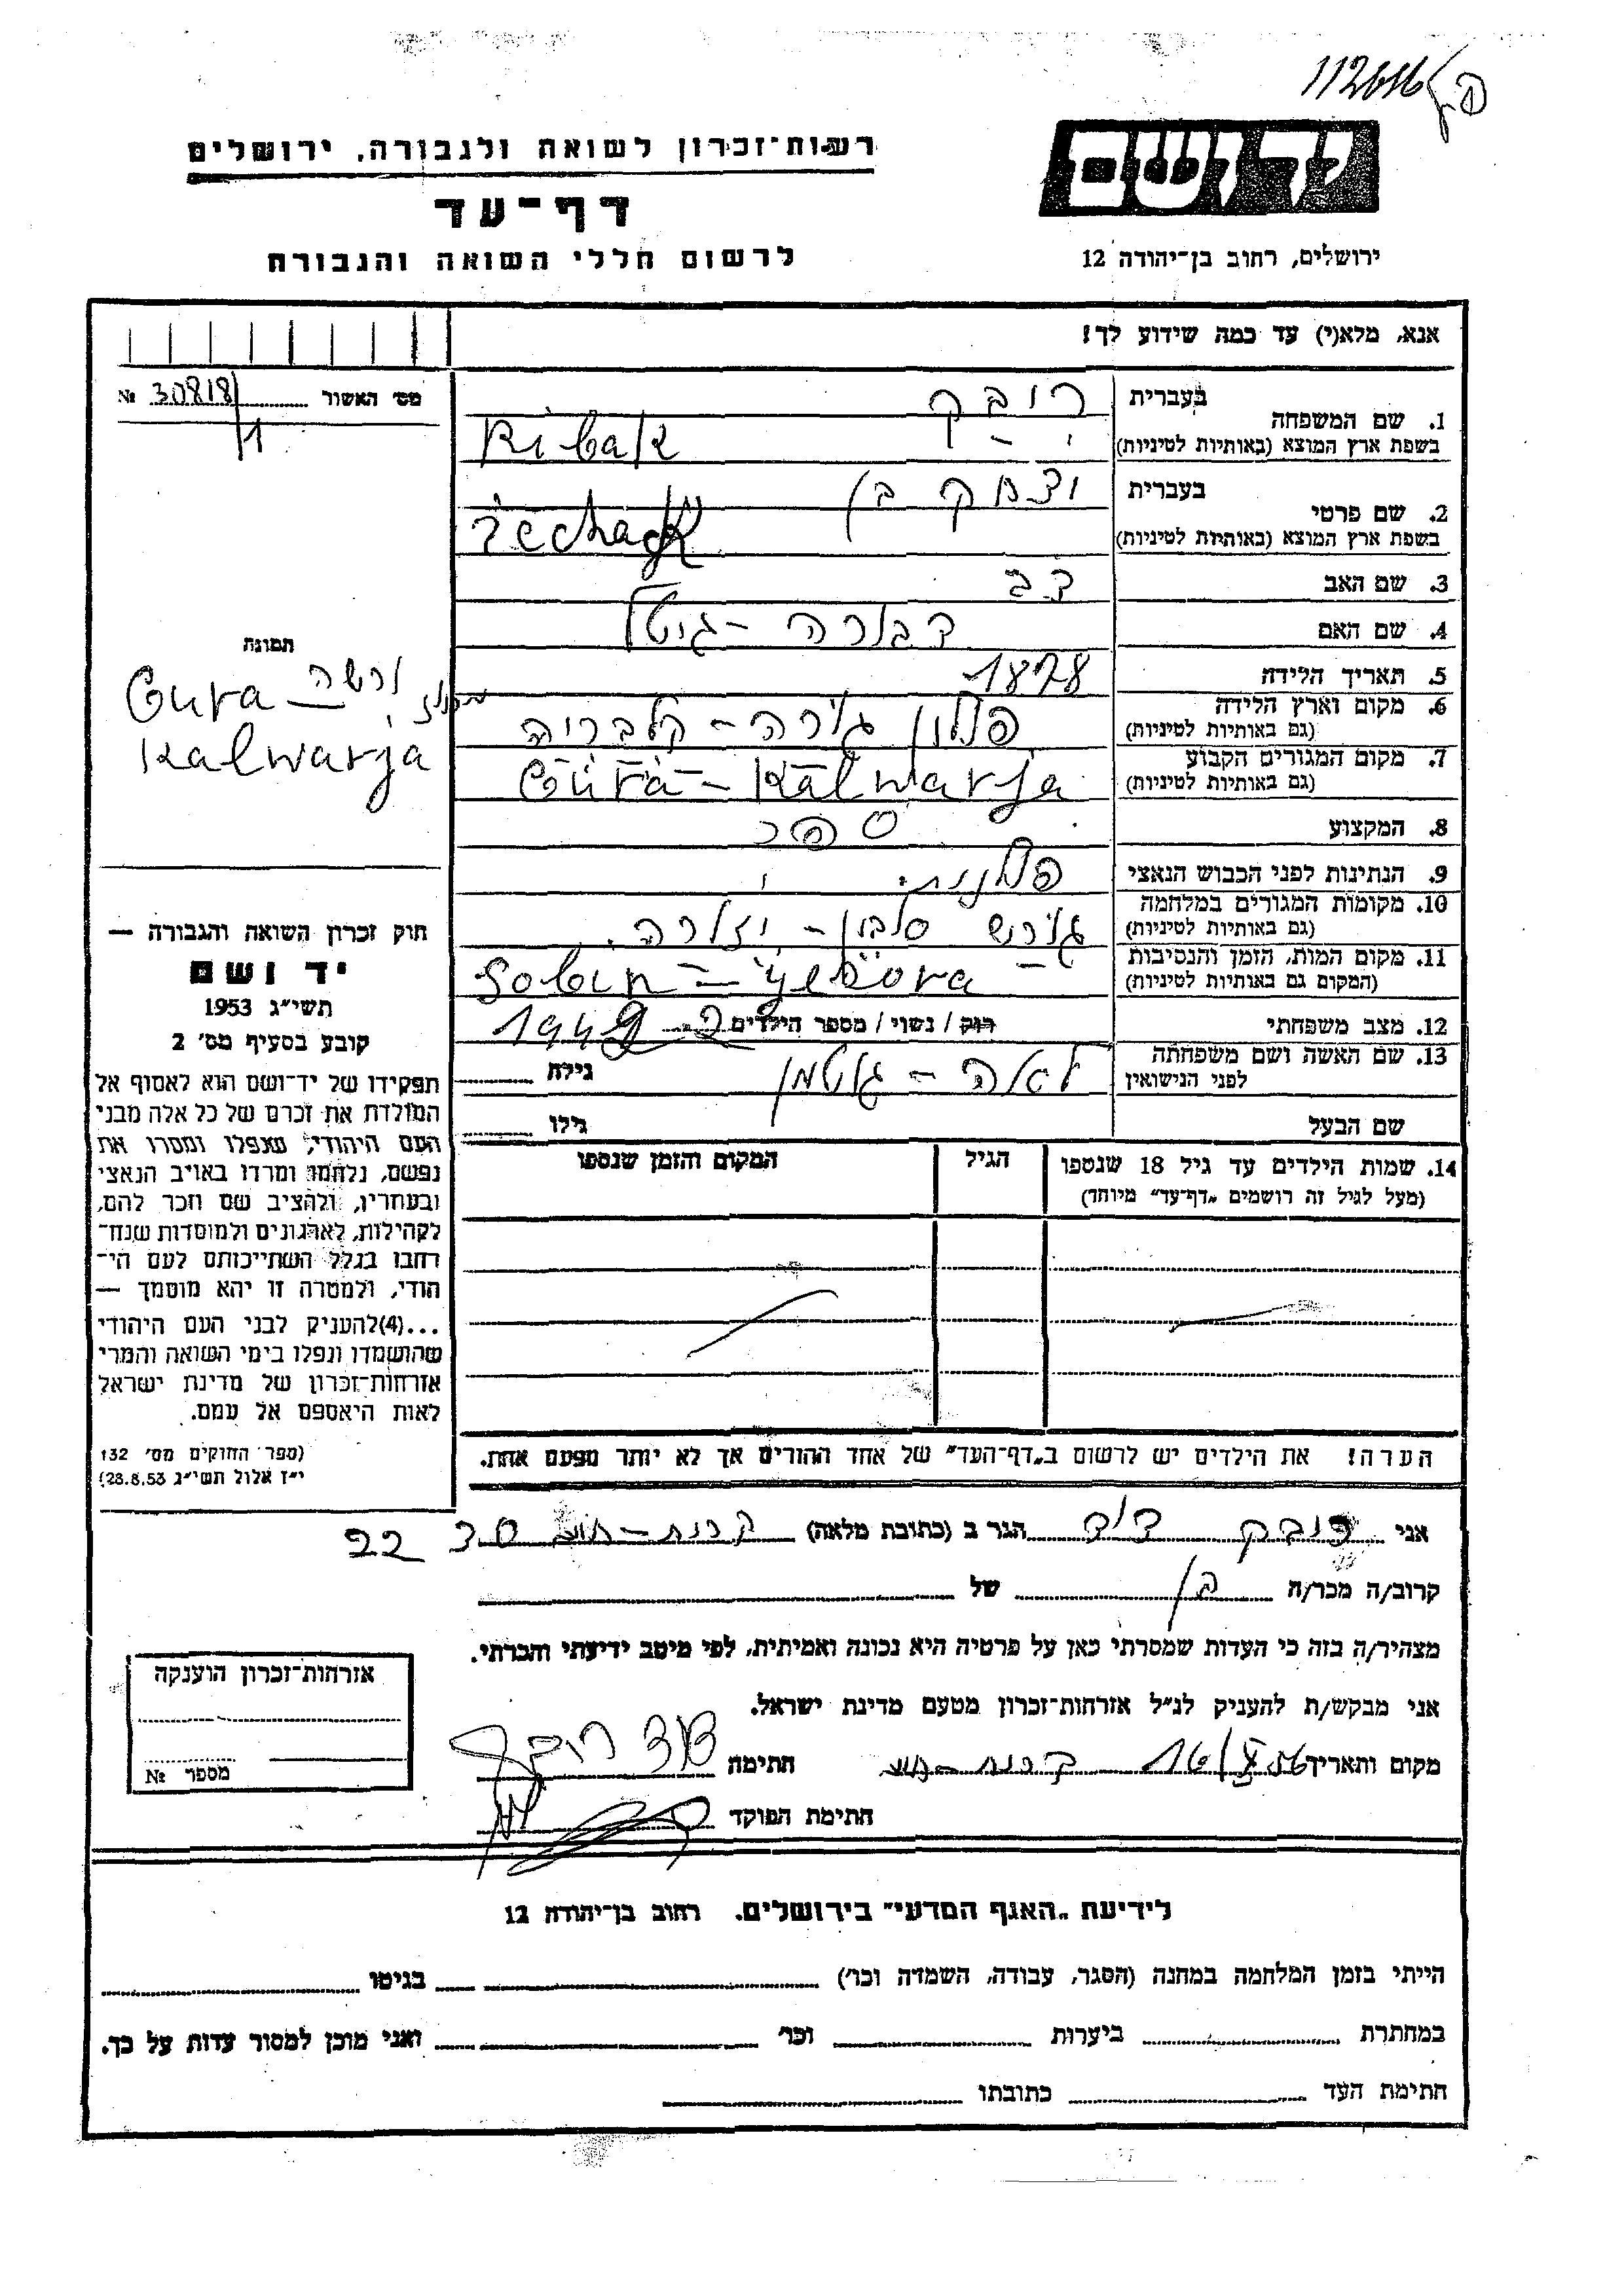 רשות־זכרון לשואה ולגבורה, ירושלים
דף־עד
לרשום חללי השואה והגבורה
יד ושם
ירושלים, רחוב בן־יהודה 12
אנא, מלא(י) עד כמה שידוע לך!
מס׳ האשור 30818/1 №
1. שם המשפחה
בעברית
בשפת ארץ המוצא (באותיות לטיניות) Ribak
2. שם פרטי
בעברית
בשפת ארץ המוצא (באותיות לטיניות)
3. שם האב דב
4. שם האם דבורה – גיטל
5. תאריך הלידה 1878
6. מקום וארץ הלידה פולין
(גם באותיות לטיניות)
7. מקום המגורים הקבוע Gura – Kalwarja
(גם באותיות לטיניות)
8. המקצוע ספר
9. הנתינות לפני הכבוש הנאצי
10. מקומות המגורים במלחמה
(גם באותיות לטיניות)
11. מקום המות, הזמן והנסיבות
(המקום גם באותיות לטיניות)
12. מצב משפחתי רוק / נשוי / מספר הילדים
13. שם האשה ושם משפחתה לאה – גוטמן גילה
לפני הנישואין
שם הבעל גילו
14. שמות הילדים עד גיל 18 שנספו הגיל המקום והזמן שנספו
(מעל לגיל זה רושמים „דף־עד״ מיוחד)
הערה! את הילדים יש לרשום ב„דף־העד״ של אחד ההורים אך לא יותר מפעם אחת.
תמונה
Gura –
Kalwarja
חוק זכרון השואה והגבורה —
יד ושם
תשי״ג 1953
קובע בסעיף מס׳ 2
תפקידו של יד־ושם הוא לאסוף אל
המולדת את זכרם של כל אלה מבני
העם היהודי, שנפלו ומסרו את
נפשם, נלחמו ומרדו באויב הנאצי
ובעוזריו, ולהציב שם וזכר להם,
לקהילות, לארגונים ולמוסדות שנח־
רחבו בגלל השתייכותם לעם הי־
הודי, ולמטרה זו יהא מוסמך —
...(4)להעניק לבני העם היהודי
שהושמדו ונפלו בימי השואה והמרי
אזרחות־זכרון של מדינת ישראל
לאות היאספם אל עמם.
(ספר החוקים מס׳ 132
י״ז אלול תשי״ג 28.8.53)
אני דוד הגר ב (כתובת מלאה) 22
קרוב/ה מכר/ה בן של
מצהיר/ה בזה כי העדות שמסרתי כאן על פרטיה היא נכונה ואמיתית, לפי מיטב ידיעתי והכרתי.
אני מבקש/ת להעניק לנ״ל אזרחות־זכרון מטעם מדינת ישראל.
מקום ותאריך חתימה
חתימת הפוקד
אזרחות־זכרון הוענקה
מספר №
לידיעת „האגף המדעי״ בירושלים. רחוב בן־יהודה 12
הייתי בזמן המלחמה במחנה (הסגר, עבודה, השמדה וכו׳) בגיטו
במחתרת ביערות וכו׳ ואני מוכן למסור עדות על כך.
חתימת העד כתובתו